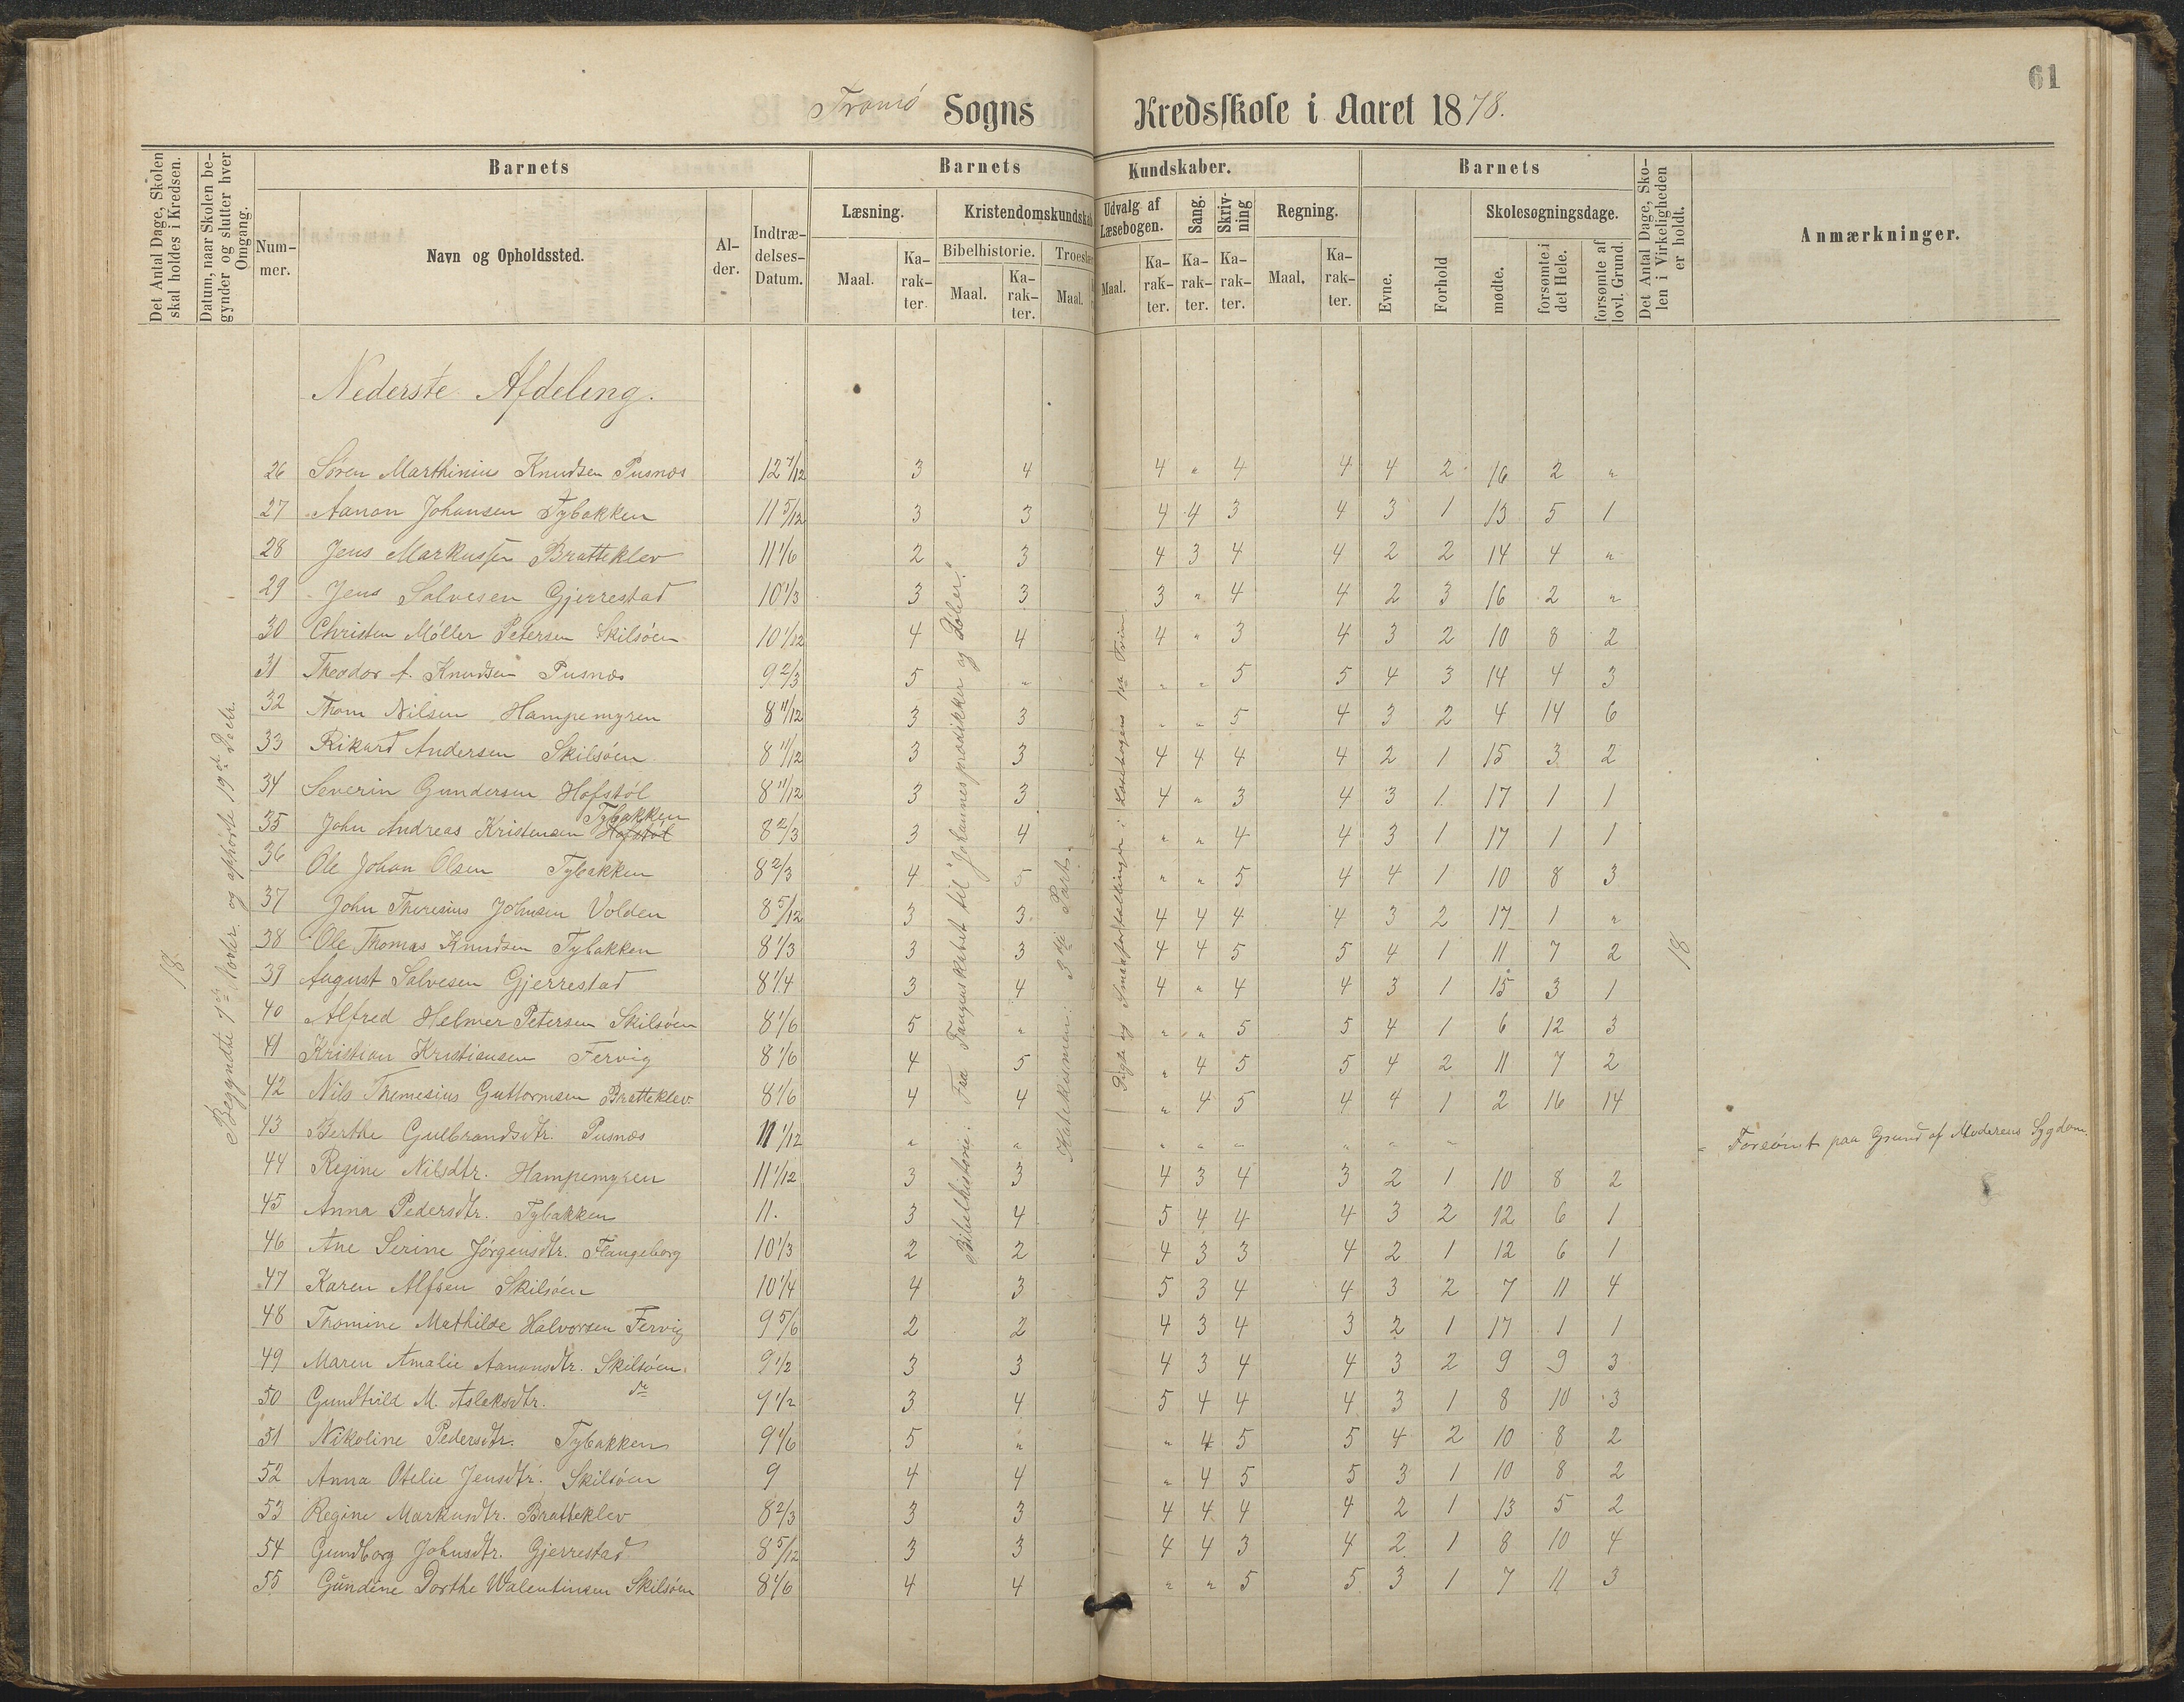 61
Tromö Sogns Kredsskole i Aaret 1878.
Det Antal Dage, Skolen skal holdes i Kredsen.
Datum, naar Skolen begynder og slutter hver Omgang.
Barnets
Barnets Kundskaber.
Barnets
Det Antal Dage, Skolen i Virkeligheden er holdt.
Anmærkninger.
Nummer.
Navn og Opholdssted.
Alder.
Indtrædelses-Datum.
Læsning.
Kristendomskundskab
Udvalg af Læsebogen.
Sang.
Skrivning
Regning.
Evne.
Forhold
Skolesøgningsdage.
Bibelhistorie.
Troeslære
Maal. Karakter. Maal. Karakter. Maal. Maal. Karakter. Karakter. Karakter. Maal. Karakter.
mødte. forsømte i det Hele. forsømte af lovl. Grund.
Nederste Afdeling.
26 Søren Marthinius Knudsen Pusnæs 12 7/12 3 4 4 " 4 4 4 2 16 2 "
27 Aanon Johansen Tybakken 11 5/12 3 3 4 4 3 4 3 1 13 5 1
28 Jens Markussen Bratteklev 11 1/6 2 3 4 3 4 4 2 2 14 4 "
29 Jens Salvesen Gjerrestad 10 1/3 3 3 3 " 4 4 2 3 16 2 "
30 Christen Möller Petersen Skilsöen 10 1/12 4 4 4 " 3 4 3 2 10 8 2
31 Theodor A. Knudsen Pusnæs 9 2/3 5 " " " 5 5 4 3 14 4 3
32 Thom Nilsen Hampemyren 8 11/12 3 3 " " 5 4 3 2 4 14 6
33 Rikard Andersen Skilsöen 8 11/12 3 3 4 4 4 4 2 1 15 3 2
34 Severin Gundersen Hofstöl 8 11/12 3 3 4 " 3 4 3 1 17 1 1
Tybakken
35 John Andreas Kristensen Hofstöl 8 2/3 3 4 " " 4 4 3 1 17 1 1
36 Ole Johan Olsen Tybakken 8 2/3 4 5 " " 5 4 4 1 10 8 3
37 John Theresius Johnsen Volden 8 5/12 3 3 4 4 4 4 3 2 17 1 "
38 Ole Thomas Knudsen Tybakken 8 1/3 3 3 4 4 5 5 4 1 11 7 2
39 August Salvesen Gjerrestad 8 1/4 3 4 4 " 4 4 3 1 15 3 1
40 Alfred Helmer Petersen Skilsöen 8 1/6 5 " " " 5 5 4 1 6 12 3
41 Kristian Kristiansen Fervig 8 1/6 4 5 " 4 5 5 4 2 11 7 2
42 Nils Themesius Guttormsen Bratteklev 8 1/6 4 4 " 4 5 4 4 1 2 16 14
43 Berthe Gulbrandsdtr. Pusnæs 11 1/12 " " " " " " " " " Forsömt paa Grund af Moderens Sygdom.
44 Regine Nilsdtr. Hampemyren 11 1/12 3 3 4 3 4 3 2 1 10 8 2
45 Anna Pedersdtr. Tybakken 11. 3 4 5 4 4 4 3 2 12 6 1
46 Ane Serine Jörgensdtr. Flangeborg 10 1/3 2 2 4 3 3 4 2 1 12 6 1
47 Karen Alfsen Skilsöen 10 1/4 4 3 5 3 4 4 3 2 7 11 4
48 Thomine Mathilde Halvorsen Fervig 9 5/6 2 2 4 3 4 3 2 1 17 1 1
49 Maren Amalie Aanonsdtr. Skilsöen. 9 1/2 3 3 4 3 4 4 3 2 9 9 3
50 Gundhild M. Aslaksdtr. do 9 1/2 3 4 5 4 4 4 3 1 8 10 3
51 Nikoline Pedersdtr. Tybakken 9 1/6 5 " " 4 5 5 4 2 10 8 2
52 Anna Otelie Jensdtr. Skilsöen 9 4 4 " 4 5 5 3 1 10 8 2
53 Regine Markusdtr. Bratteklev 8 2/3 3 3 4 4 4 4 2 1 13 5 2
54 Gundborg Johnsdtr. Gjerrestad 8 5/12 3 3 4 4 3 4 2 1 8 10 4
55 Gundine Dorthe Walentinsen Skilsöen 8 1/6 4 4 " " 5 5 3 1 7 11 3
18.
Begyndte 7de Novbr. og ophörte 19de Decbr.
Bibelhistorie: Fra Fangenskabet til "Johannes prædikker og Döber."
Katekismen: 3die Part.
Digte og Smaafortællinger i Læsebogens 1ste Trin
18